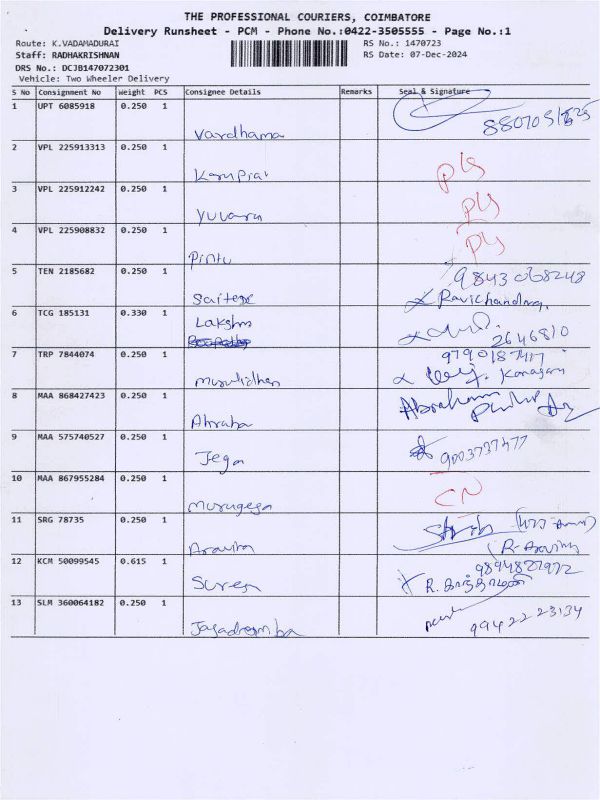 THE PROFESSIONAL COURIERS, COIMBATORE
Delivery Runsheet - PCM - Phone No.:0422-3505555 - Page No.:1
Route: K.VADAMADURAI RS No.: 1470723
Staff: RADHAKRISHNAN RS Date: 07-Dec-2024
DRS No.: DCJB147072301
Vehicle: Two Wheeler Delivery
S No Consignment No Weight PCS Consignee Details Remarks Seal & Signature
1 UPT 6085918 0.250 1
Vardhama
2 VPL 225913313 0.250 1
3 VPL 225912242 0.250 1
Yuvaru
4 VPL 225908832 0.250 1
Pintu
5 TEN 2185682 0.250 1 9843068248
Ravichandra.
6 TCG 185131 0.330 1 Lakshm
2646810
7 TRP 7844074 0.250 1
8 MAA 868427423 0.250 1 Abraham
Abraha
9 MAA 575740527 0.250 1
Jega 9003737477
10 MAA 867955284 0.250 1 CN
Murugesa
11 SRG 78735 0.250 1
Aravin
12 KCM 50099545 0.615 1
Suresh
13 SLM 360064182 0.250 1
9942223134